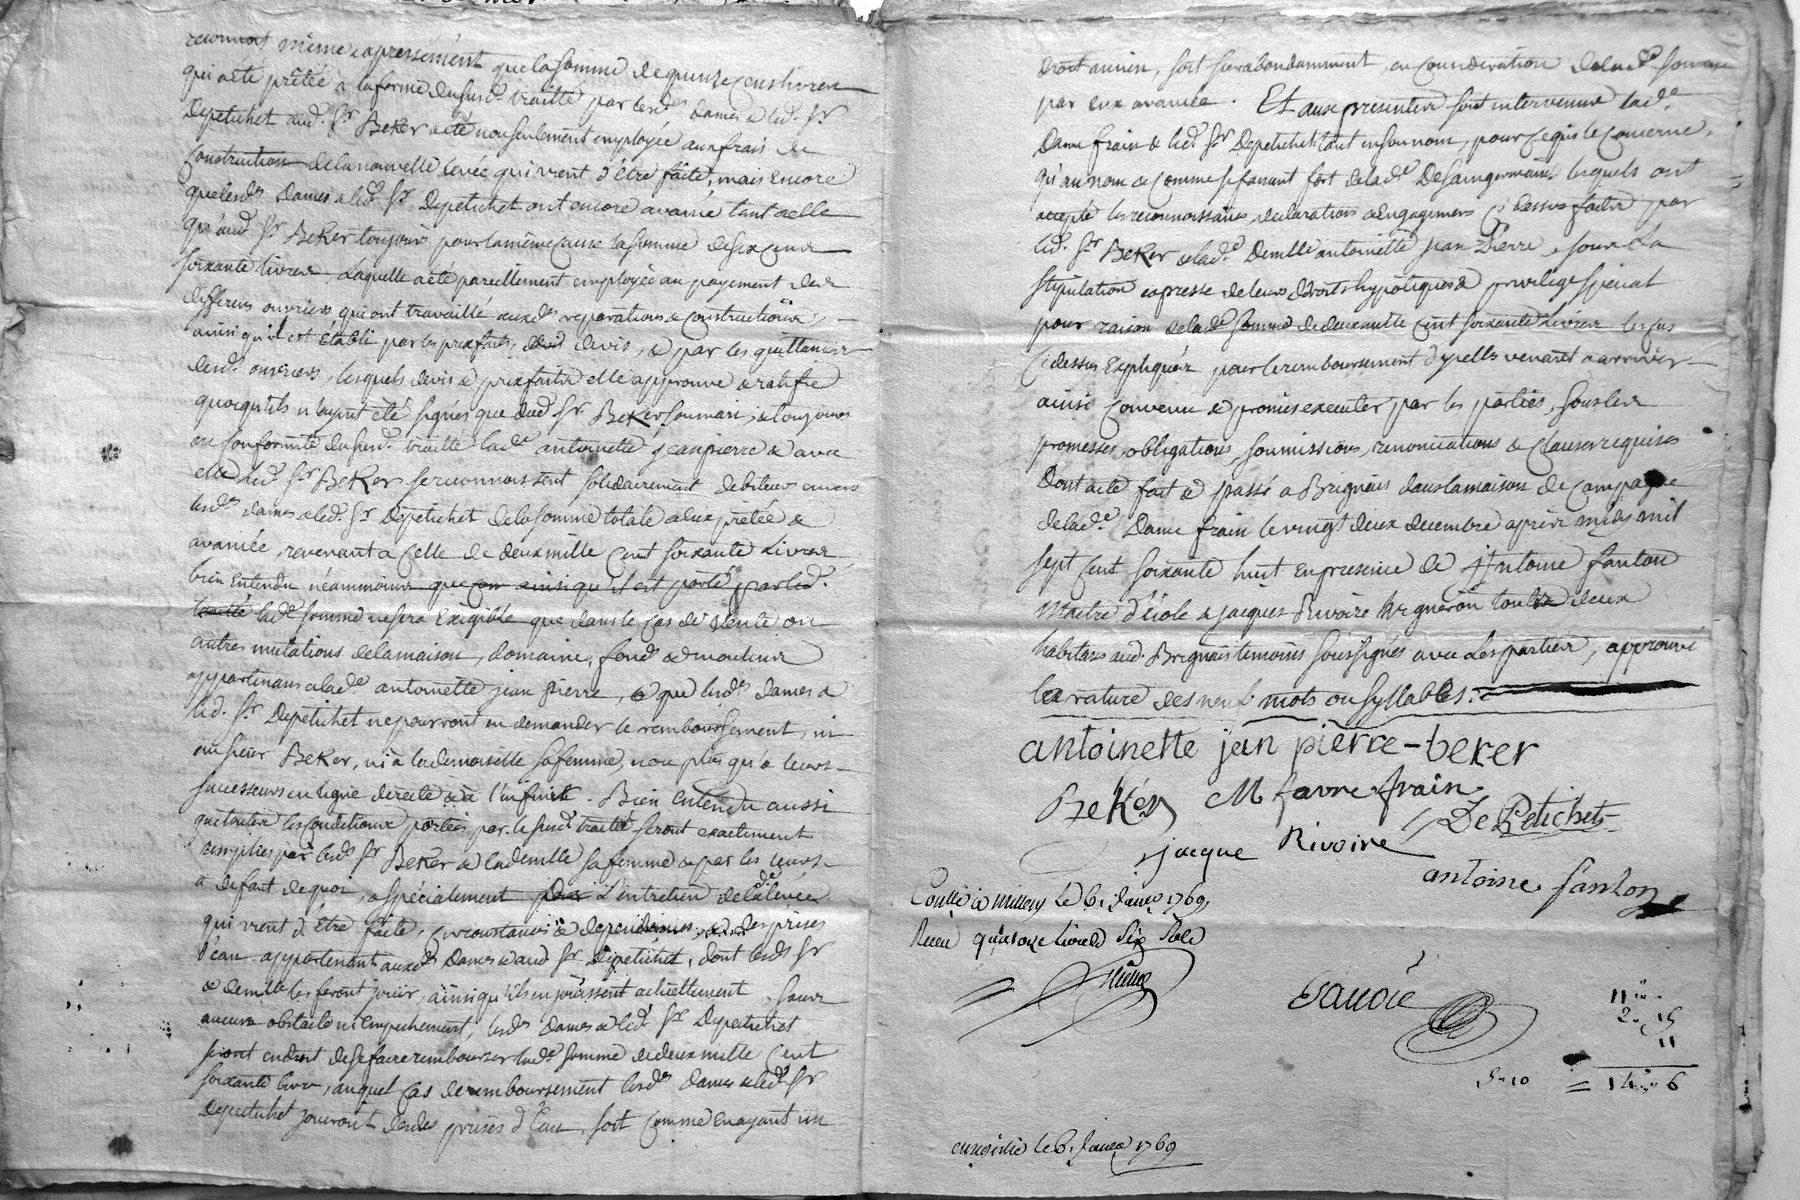 reconnoit même expressément que la somme de quinze cens livres
qui a été prêtée à la forme du susd. traitté par lesd.es dames & led. Sr.
Depetichet aud. Sr. Beker a été non seulement employée aux frais de
Construction de la nouvelle levée qui vient d'être faite, mais encore
que lesd.es Dames & led. Sr. Depetichet ont encore avancé tant à elle
qu'aud. Sr. Beker toujours pour la même cause la somme de six cens
soixante livres laquelle a été pareillement employée au payement des
differens ouvriers qui ont travaillé auxd.es reparations & constructions,
ainsi qu'il est établi par les prixfaits, devis, & par les quittances
desd. ouvriers, lesquels devis & prixfaits elle approuve & ratifie
quoiqu'ils n'ayent été signés que dud. Sr. Beker son mari; & toujours
en conformité du susd. traitté lad.e antoinette jeanpierre & avec
elle led. Sr. Beker se reconnoissent solidairement debiteurs envers
lesd.es dames & led. Sr. Depetichet de la somme totale à eux prêtée &
avancée, revenant a celle de deux mille cent soixante Livres
bien entendu néanmoins que ainsi qu'il est porté par led.
traitté lad.e somme ne sera exigible que dans le cas de vente ou
autres mutations de la maison, domaine, fonds & moulins
appartenans a lad.e antoinette jean pierre, & que lesd.es dames &
led. Sr. Depetichet ne pourront en demander le remboursement, ni
au sieur Beker, ni à la demoiselle sa femme, non plus qu'à leurs
successeurs en ligne directe & à l'infinit. Bien entendu aussi
que toutes les conditions portées par le susd. traitté seront exactement
remplies par led. Sr. Beker & la demlle sa femme & par les leurs
à defaut de quoi, & spécialement l'entretien de lad.e levée
qui vient d'être faite, circonstances & dependances, & des prises
d'eau appartenant auxd.es Dames & aud. Sr. Depetichet, dont led. Sr.
& demlle les feront jouir, ainsi qu'ils en jouissent actuellement, sans
aucun obstacle ni empechement, lesd.es Dames & led. Sr. Depetichet
seront en droit de se faire rembourser lad.e somme de deux mille cent
soixante livres, auquel cas de remboursement lesd.es Dames & led. Sr.
Depetichet jouiront desd.es prises d'Eau, soit comme en ayant un
droit ancien, soit surabondamment en consideration de lad.e somme
par eux avancée. Et aux presentes sont intervenus lad.e
Dame frain & led. Sr. Depetichet tant en son nom, pour ce qui le concerne,
qu'au nom & comme se faisant fort de lad.e De saingermain lesquels ont
accepté les reconnoissances, declarations & engagemens ci dessus faites par
led. Sr. Beker & lad.e Demlle antoinette jean Pierre, sous la
stipulation expresse de leurs droits hypotiques & privilege special
pour raison de lad.e somme de deux mille cent soixante Livres les cas
ci dessus Expliqués pour le remboursement d'ycelle venant a arriver
ainsi convenu & promis executer par les parties, sous les
promesses, obligations, soumissions, renonciations & clauses requises
Dont acte fait & passé a Brignais dans la maison de campagne
de lad.e Dame frain le vingt deux decembre après midy mil
sept cent soixante huit en presence de Antoine fanton
Maitre d'école & jacques Rivoire vigneron tous deux
habitans aud. Brignais temoins soussignés avec les parties, approuvé
la rature des neuf mots ou syllabes.
antoinette jan pierre-beker
Bekér M favre frain
De Petichet
jacque Rivoire
antoine fanton
Conllé à millery Le 6. Janer 1769,
Receu quatorze livres Six Sols
enregistré le 6. Janer 1769
11
2 15
11
5 10 = 14 6